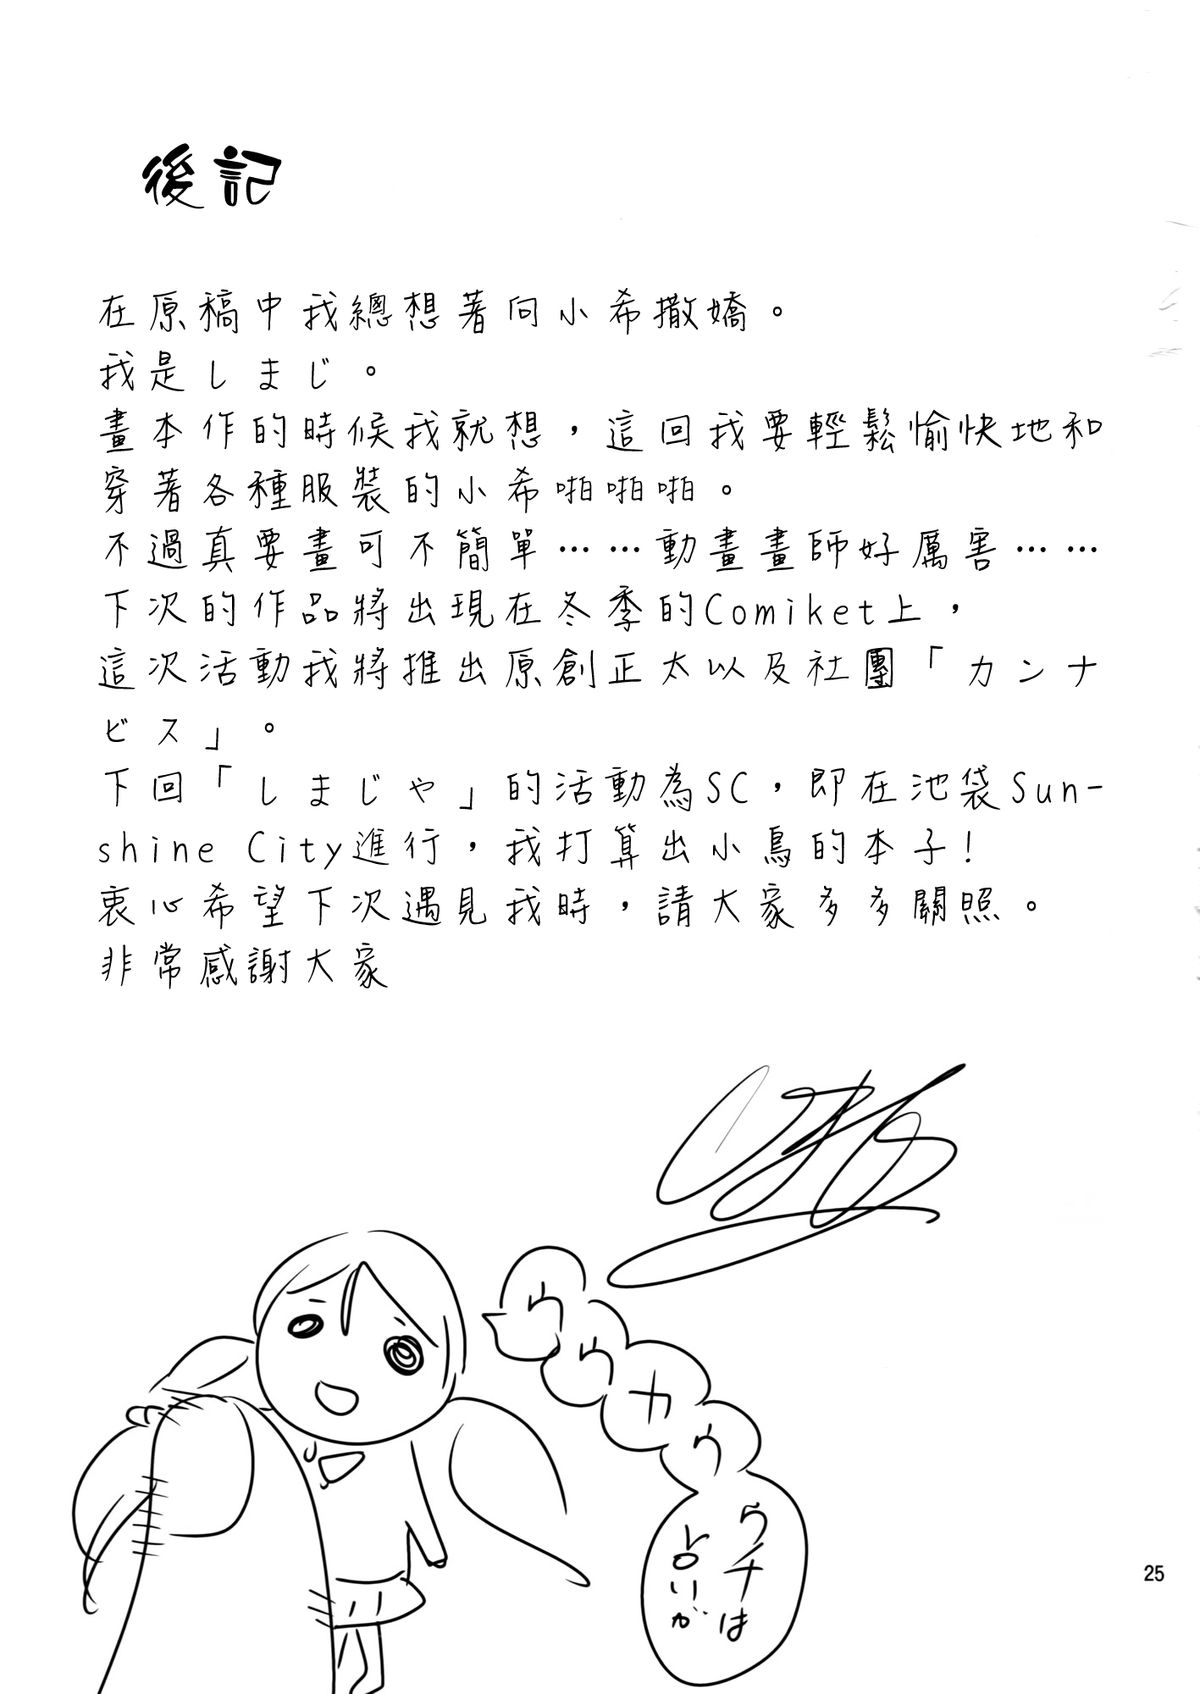 後記
在原稿中我總想著向小希撒嬌。
我是しまじ。
畫本作的時候我就想，這回我要輕鬆愉快地和
穿著各種服裝的小希啪啪啪。
不過真要畫可不簡單……動畫畫師好厲害……
下次的作品將出現在冬季的Comiket上，
這次活動我將推出原創正太以及社團「カンナ
ビス」。
下回「しまじや」的活動為SC，即在池袋Sun-
shine City進行，我打算出小鳥的本子!
衷心希望下次遇見我時，請大家多多關照。
非常感謝大家
ウ
ウウ
カ
ウ
ウチは
25